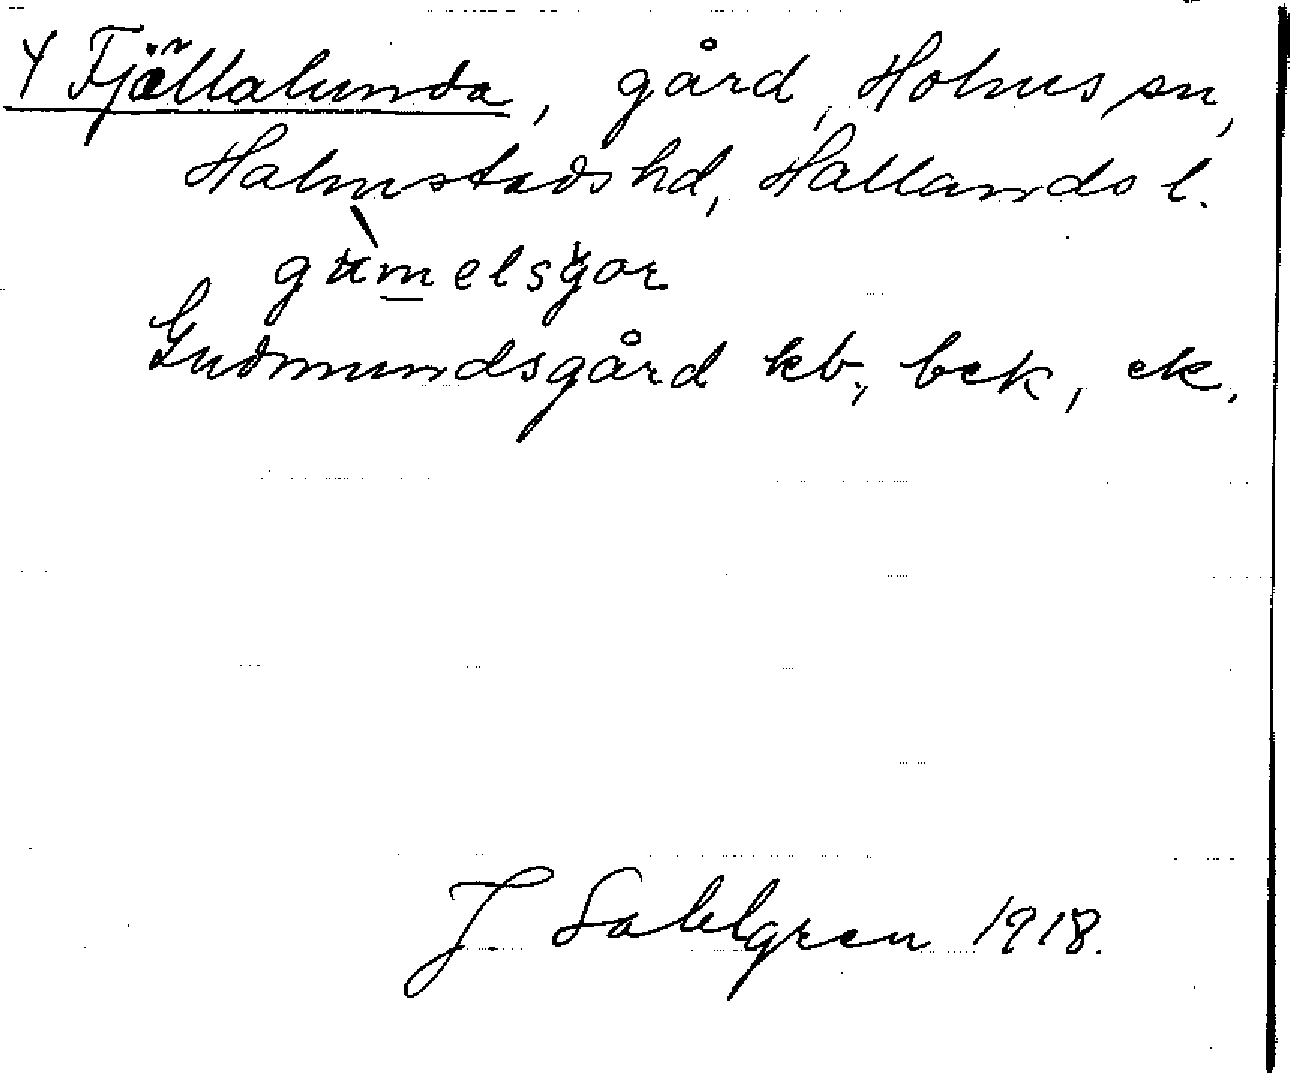 Y Fjällalunda, gård, Holms sn,
Halmstads hd, Hallands l.
gùmelsgor
Gudmundsgård kb, bek, ek.
J. Sahlgren 1918.